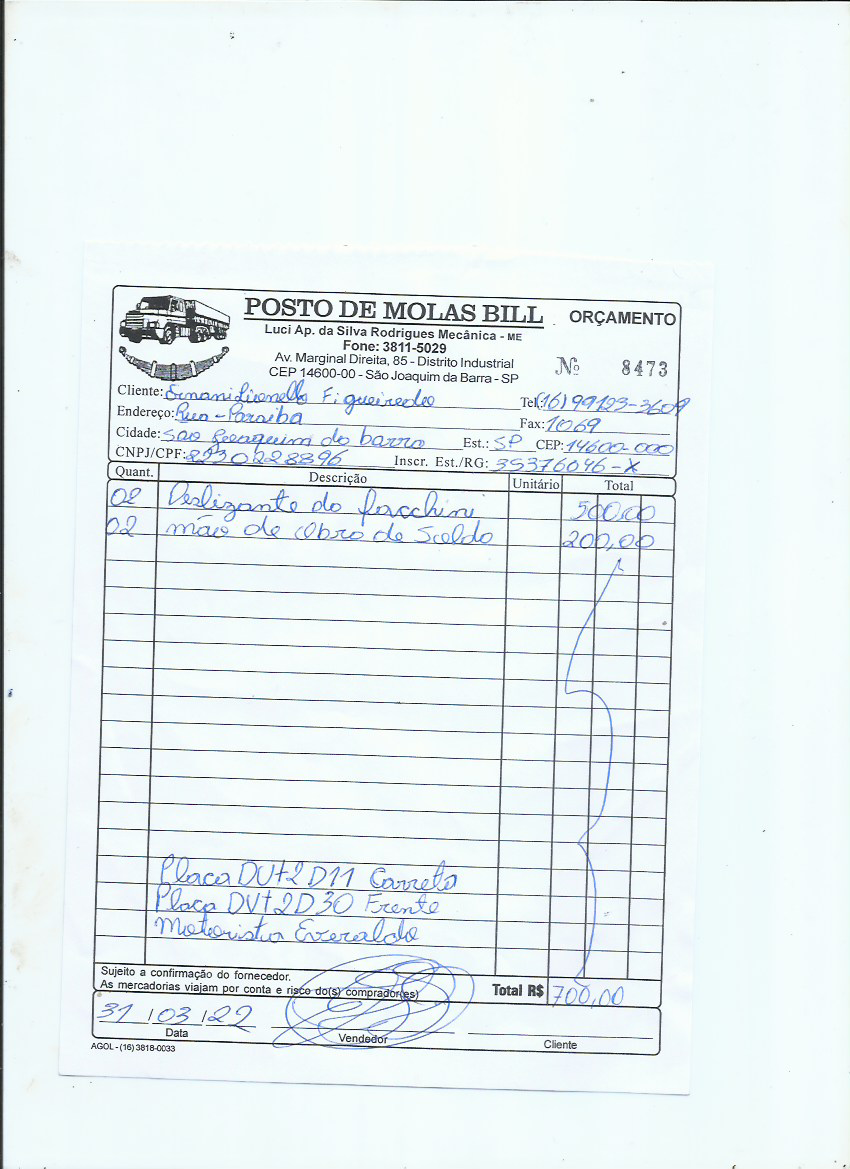 POSTO DE MOLAS BILL
ORÇAMENTO
Luci Ap. da Silva Rodrigues Mecânica - ME
Fone: 3811-5029
Av. Marginal Direita, 85 - Distrito Industrial
CEP 14600-00 - São Joaquim da Barra - SP
Nº 8473
Cliente: Ernani Lionello Figueiredo Tel.: (16) 99123-3609
Endereço: Rua - Paraiba Fax: 1069
Cidade: São Joaquim da barra Est.: SP CEP: 14600-000
CNPJ/CPF: 8230228896 Inscr. Est./RG: 35376046-X
Quant. Descrição Unitário Total
02 Deslizante do facchini 500,00
02 mão de Obra de Solda 200,00
Placa DVt2D11 Carreta
Placa DVt2D30 Frente
Motorista Everaldo
Sujeito a confirmação do fornecedor.
As mercadorias viajam por conta e risco do(s) comprador(es)
Total R$ 700,00
31/03/22
Data Vendedor Cliente
AGOL - (16) 3818-0033